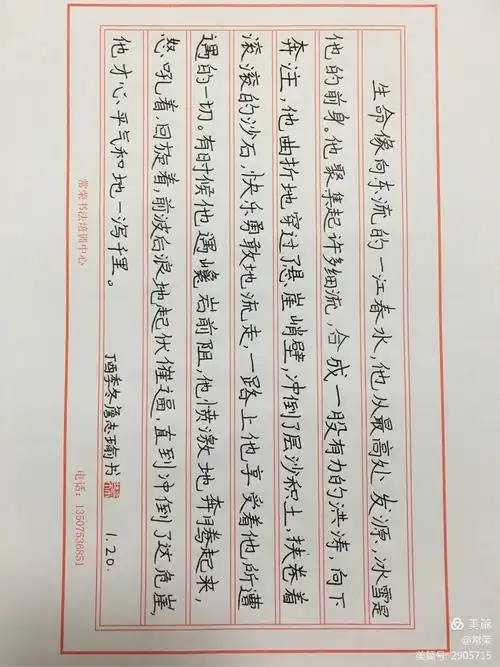 生命像向东流的一江春水，他从最高处发源，冰雪是
他的前身。他聚集起许多细流，合成一股有力的洪涛，向下
奔注，他曲折地穿过了悬崖峭壁，冲倒了层沙积土，挟卷着
滚滚的沙石，快乐勇敢地流走，一路上他享受着他所遭
遇的一切。有时候他遇巉岩前阻，他愤激地奔腾起来，
怒吼着，回旋着，前波后浪地起伏催逼，直到冲倒了这危崖，
他才心平气和地一泻千里。
丁酉季冬詹志瑜书 1.20.
常荣书法培训中心 电话：13507536851
美篇
@常荣
美篇号：2905715